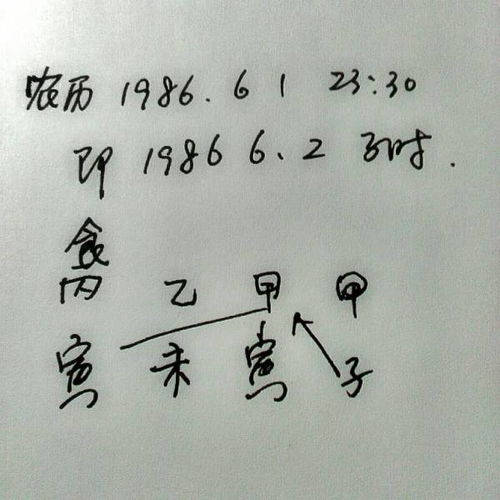 农历 1986.6 1 23:30
即 1986 6.2 子时.
食
丙 乙 甲 甲
寅 未 寅 子